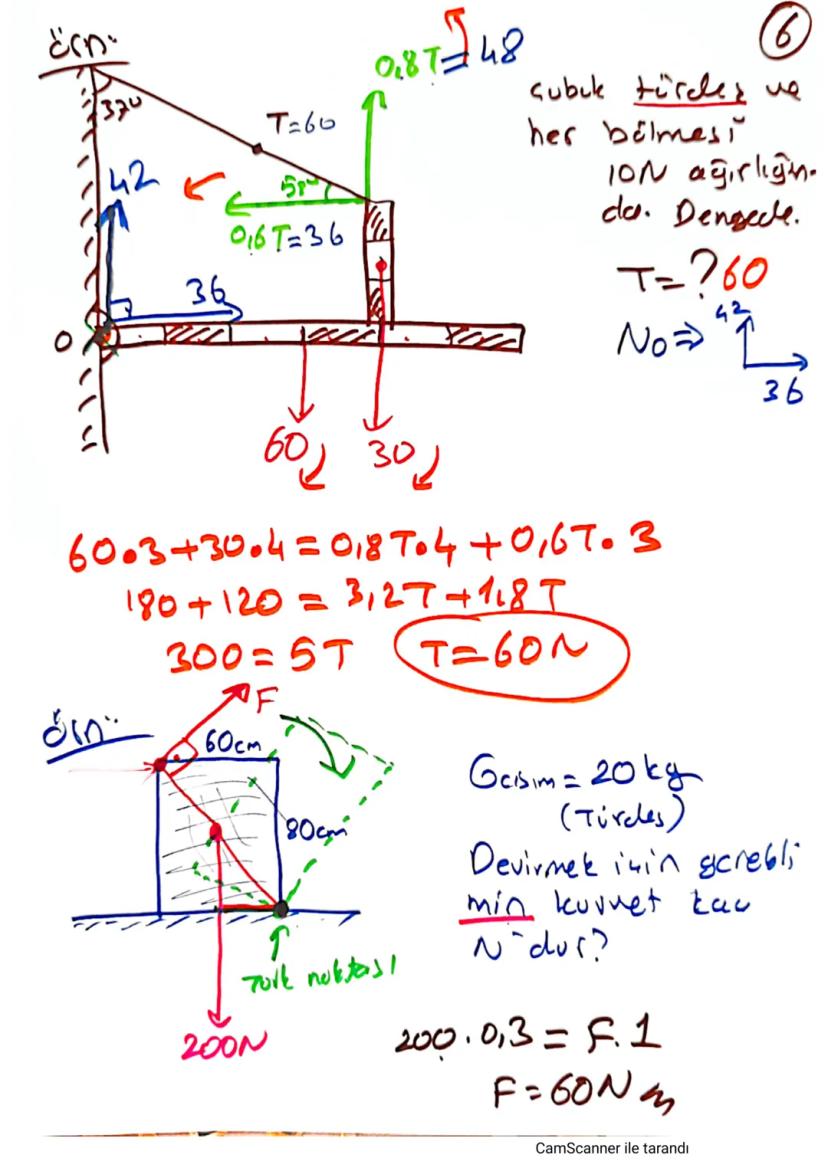 6
örn:
0,8T = 48
37°
T=60
çubuk türdeş ve
her bölmesi
10N ağırlığın-
da. Dengede.
42
53°
0,6T=36
T=?60
36
O
No⇒
42
36
60 30
60.3+30.4=0,8T.4+0,6T.3
180+120=3,2T+1,8T
300=5T T=60N
örn:
F
60cm
80cm
Gcisim=20kg
(Türdeş)
Devirmek için gerekli
min kuvvet kaç
N'dur?
Tork noktası
200N
200.0,3=F.1
F=60N
CamScanner ile tarandı